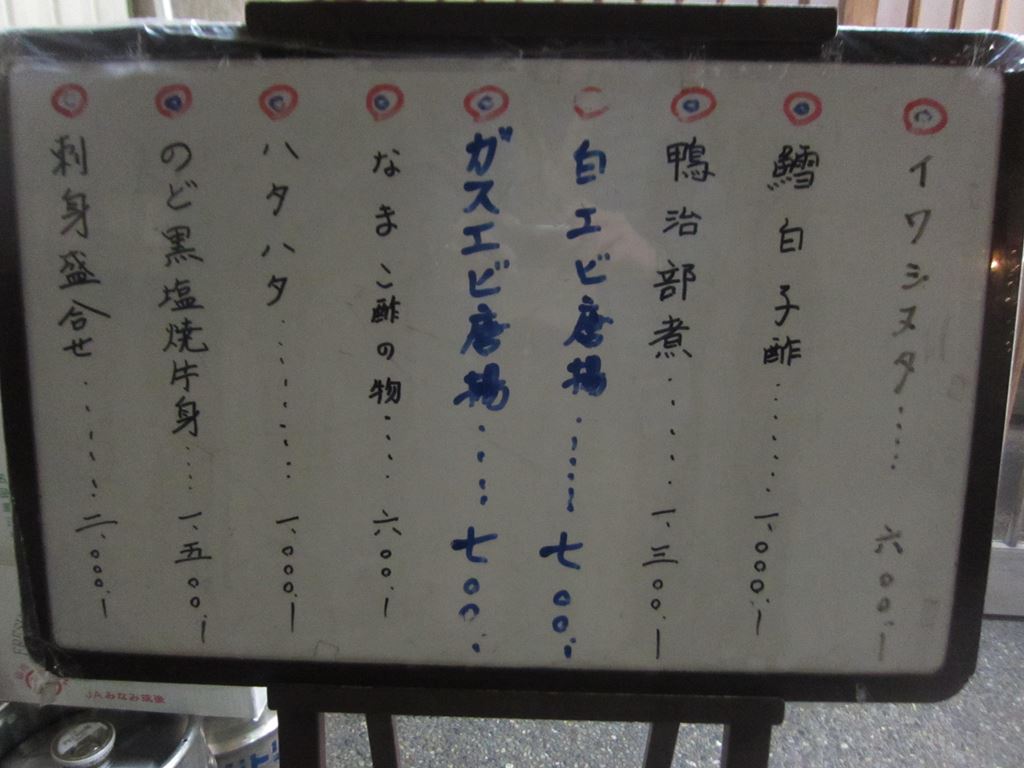 イワシヌタ……六〇〇.ー
鱈白子酢……一、〇〇〇.ー
鴨治部煮……一、三〇〇.ー
白エビ唐揚……七〇〇.
ガスエビ唐揚……七〇〇.
なまこ酢の物……六〇〇.ー
ハタハタ……一、〇〇〇.ー
のど黒塩焼牛身……一、五〇〇.ー
刺身盛合せ……二、〇〇〇.ー
JAみなみ筑後